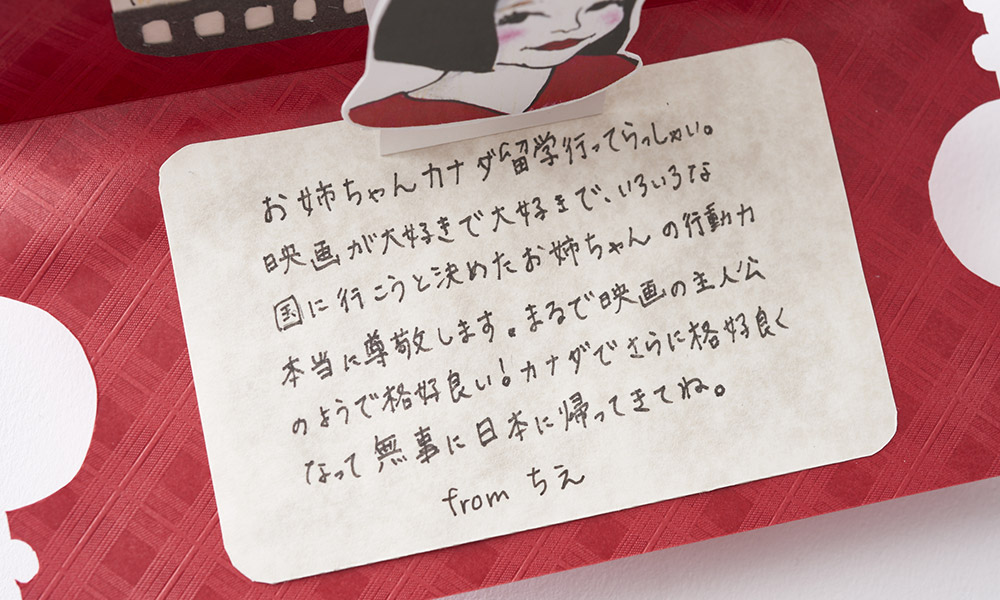 お姉ちゃんカナダ留学行ってらっしゃい。
映画が大好きで大好きで、いろいろな
国に行こうと決めたお姉ちゃんの行動力
本当に尊敬します。まるで映画の主人公
のようで格好良い！カナダでさらに格好良く
なって無事に日本に帰ってきてね。
from ちえ